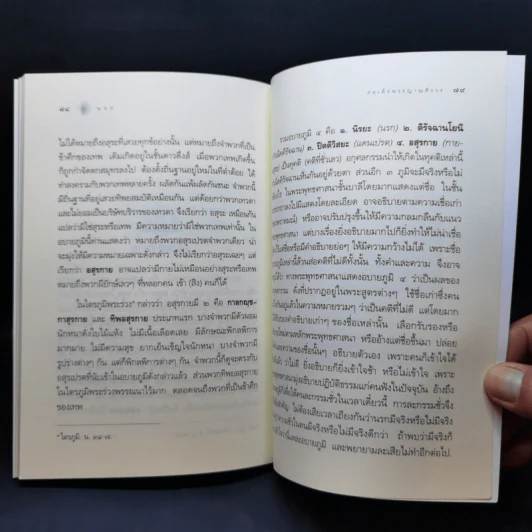 ๗๘
นรก
ไม่ได้หมายถึงอสุระที่เสวยทุกข์อย่างนั้น แต่หมายถึงจำพวกที่เป็น
ข้าศึกของเทพ เดิมเกิดอยู่ในชั้นดาวดึงส์ เมื่อพวกเทพเกิดขึ้น
ก็ถูกกำจัดตกสมุทรลงไป ต้องไปตั้งถิ่นฐานอยู่ใหม่ในที่ต่ำด้อย ได้
ทำสงครามกับพวกเทพหลายครั้ง ผลัดกันแพ้ผลัดกันชนะ จำพวกนี้
มีถิ่นฐานที่อยู่เสวยทิพยสมบัติเหมือนกัน แต่ด้อยกว่าพวกเทวดา
และไม่ยอมเป็นบริษัทบริวารของเทวดา จึงเรียกว่า อสุระ เหมือนกัน
แปลว่ามิใช่สุระหรือเทพ มีความหมายว่ามิใช่พวกเทพเท่านั้น ใน
อบายภูมินี้ท่านแสดงว่า หมายถึงพวกอสุรเปรตจำพวกเดียว น่า
จะมุ่งให้มีความหมายเฉพาะดังกล่าว จึงไม่เรียกว่าอสุระเฉยๆ แต่
เรียกว่า อสุรกาย อาจแปลว่ามีกายไม่เหมือนอย่างสุระหรือเทพ
หมายถึงพวกผียักษ์เลวๆ ที่หลอกคน เข้า (สิง) คนก็ได้
ในไตรภูมิพระร่วง* กล่าวว่า อสุรกายมี ๒ คือ กาลกัญช-
กาสุรกาย และ ทิพอสุรกาย ประเภทแรก บางจำพวกมีตัวผอม
นักหนาดังใบไม้แห้ง ไม่มีเนื้อเลือดเลย มีลักษณะพิกลพิการ
มากมาย ไม่มีความสุข ยากเย็นเข็ญใจนักหนา บางจำพวกมี
รูปร่างต่างๆ กัน แต่ก็พิกลพิการต่างๆ กัน จำพวกนี้ก็ดูจะตรงกับ
อสุรเปรตที่นับเข้าในอบายภูมิดังกล่าวแล้ว ส่วนพวกทิพยอสุรกาย
ในไตรภูมิพระร่วงพรรณนาไว้มาก ตลอดจนถึงพวกที่เป็นข้าศึก
ของเทพ
*ไตรภูมิ. น.
สมเด็จพระญาณสังวร ๗๙
รวมอบายภูมิ ๔ คือ ๑. นิรยะ (นรก) ๒. ติรัจฉานโยนิ
๓. ปิตติวิสยะ (แดนเปรต) ๔. อสุรกาย (กาย-
เป็นทุคติ (คติที่ชั่วเลว) อกุศลกรรมนำให้เกิดในทุคติเหล่านี้
เห็นกันอยู่ด้วยตา ส่วนอีก ๓ ภูมิจะมีจริงหรือไม่
ในพระพุทธศาสนาชั้นบาลีโดยมากแสดงแต่ชื่อ ในชั้น
ไปมีแสดงโดยละเอียด อาจอธิบายตามความเชื่อเก่า
หรืออาจปรับปรุงขึ้นให้มีความกลมกลืนกับแนว
พุทธศาสนา แต่บางเรื่องยิ่งอธิบายมากไปก็ยิ่งทำให้ไม่น่าเชื่อ
ชื่อหรือมีคำอธิบายย่อๆ ให้มีความกว้างไม่ได้ เพราะชื่อ
ภูมิเหล่านี้ล้วนส่อคติที่ไม่ดีทั้งนั้น ทั้งคำและความ จึงอาจ
ทางพระพุทธศาสนาแสดงอบายภูมิ ๔ ว่าเป็นผลของ
ดังที่ปรากฏอยู่ในพระสูตรต่างๆ ใช้ชื่อเก่าซึ่งคน
อยู่แล้วในความหมายรวมๆ ว่าเป็นคติที่ไม่ดี แต่โดยมาก
คำอธิบายเก่าๆ ของชื่อเหล่านั้น เลือกรับรองหรือ
ใหม่ตามหลักพระพุทธศาสนา หรืออ้างแต่ชื่อขึ้นมา ปล่อย
ความของชื่อนั้นๆ อธิบายตัวเอง เพราะคนก็เข้าใจได้
ว่าไม่ดี ยิ่งอธิบายก็ยิ่งเข้าใจช้า หรือไม่เข้าใจ เพราะ
พุทธศาสนามุ่งอธิบายปฏิบัติธรรมแก่คนฟังในปัจจุบัน อ้างถึง
ภูมิก็เพื่อให้คนละกรรมชั่วในเวลาเดี๋ยวนี้ การละกรรมชั่วจึง
สำคัญ ไม่ต้องเสียเวลาเถียงกันว่านรกมีจริงหรือไม่มีจริง
ในตนมีจริงหรือไม่มีจริงดีกว่า ถ้าพบว่ามีจริงก็
อบายภูมิ และพยายามละเสียไม่ทำอีกต่อไป.